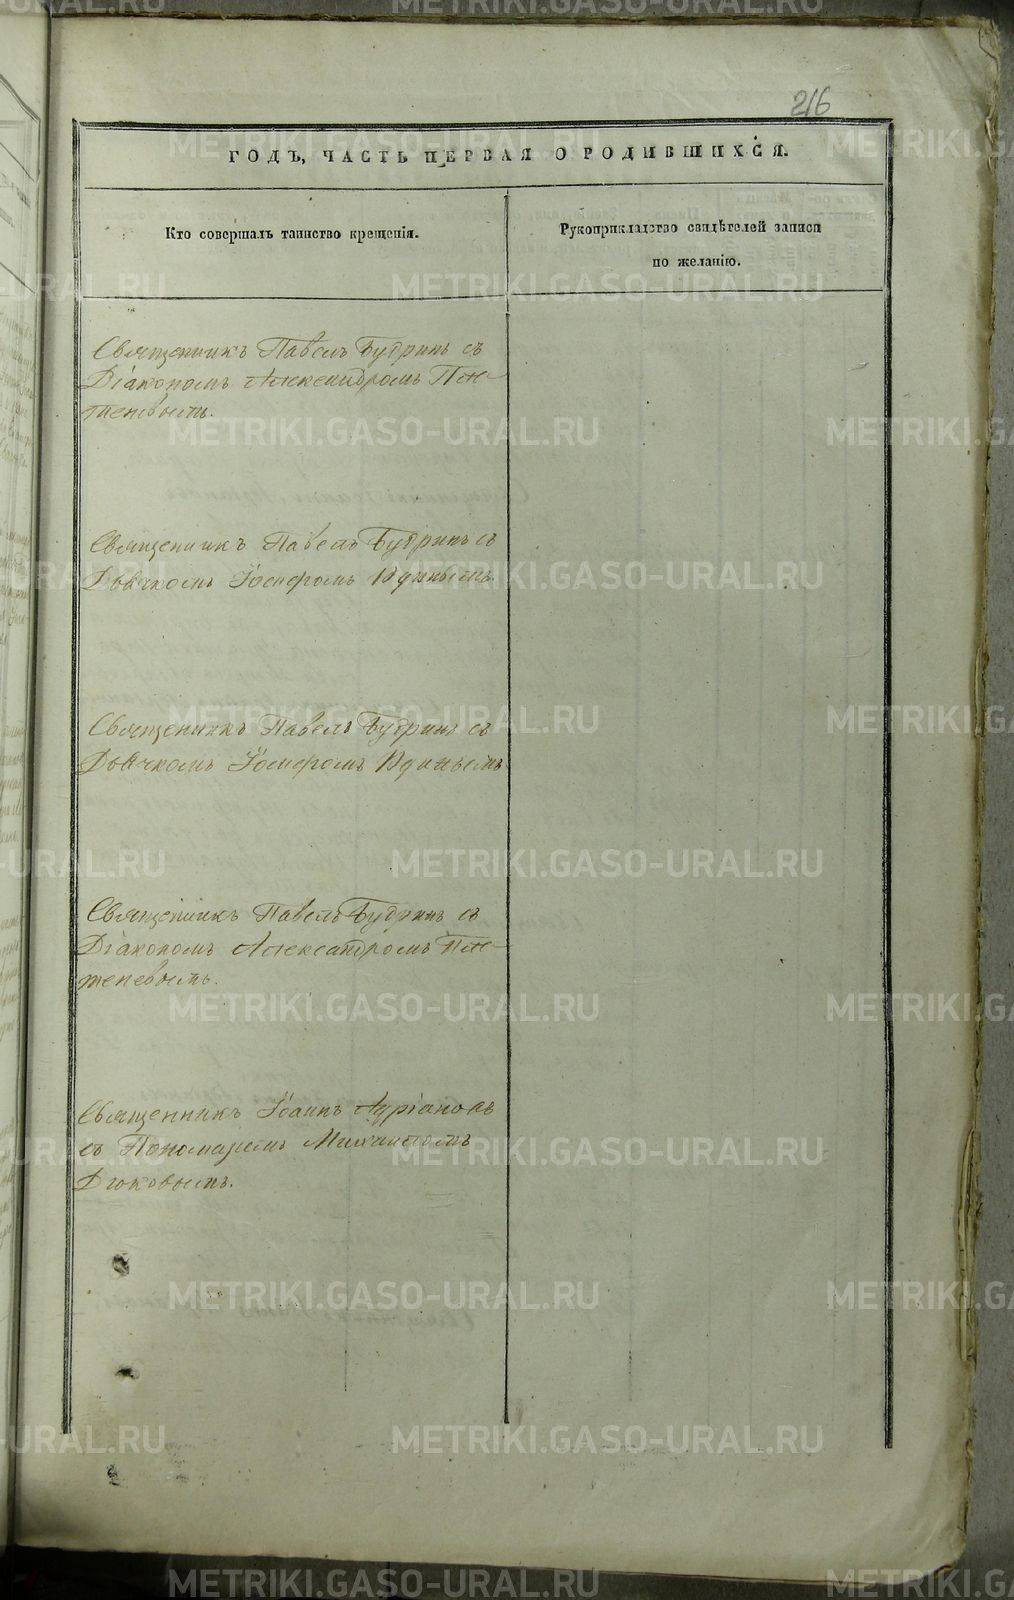 216
ГОДЪ, ЧАСТЬ ПЕРВАЯ О РОДИВШИХСЯ.
Кто совершалъ таинство крещенія.
Рукоприкладство свидѣтелей записи
по желанію.
Священникъ Павелъ Будринъ съ
Діакономъ Александромъ
Священникъ Павелъ Будринъ съ
Дьячкомъ Іосифомъ
Священникъ Павелъ Будринъ съ
Дьячкомъ Іосифомъ
Священникъ Павелъ Будринъ съ
Діакономъ Александромъ
Священникъ Іоаннъ Адріановъ
съ Пономаремъ Михаиломъ
Дюковымъ.
METRIKI.GASO-URAL.RU